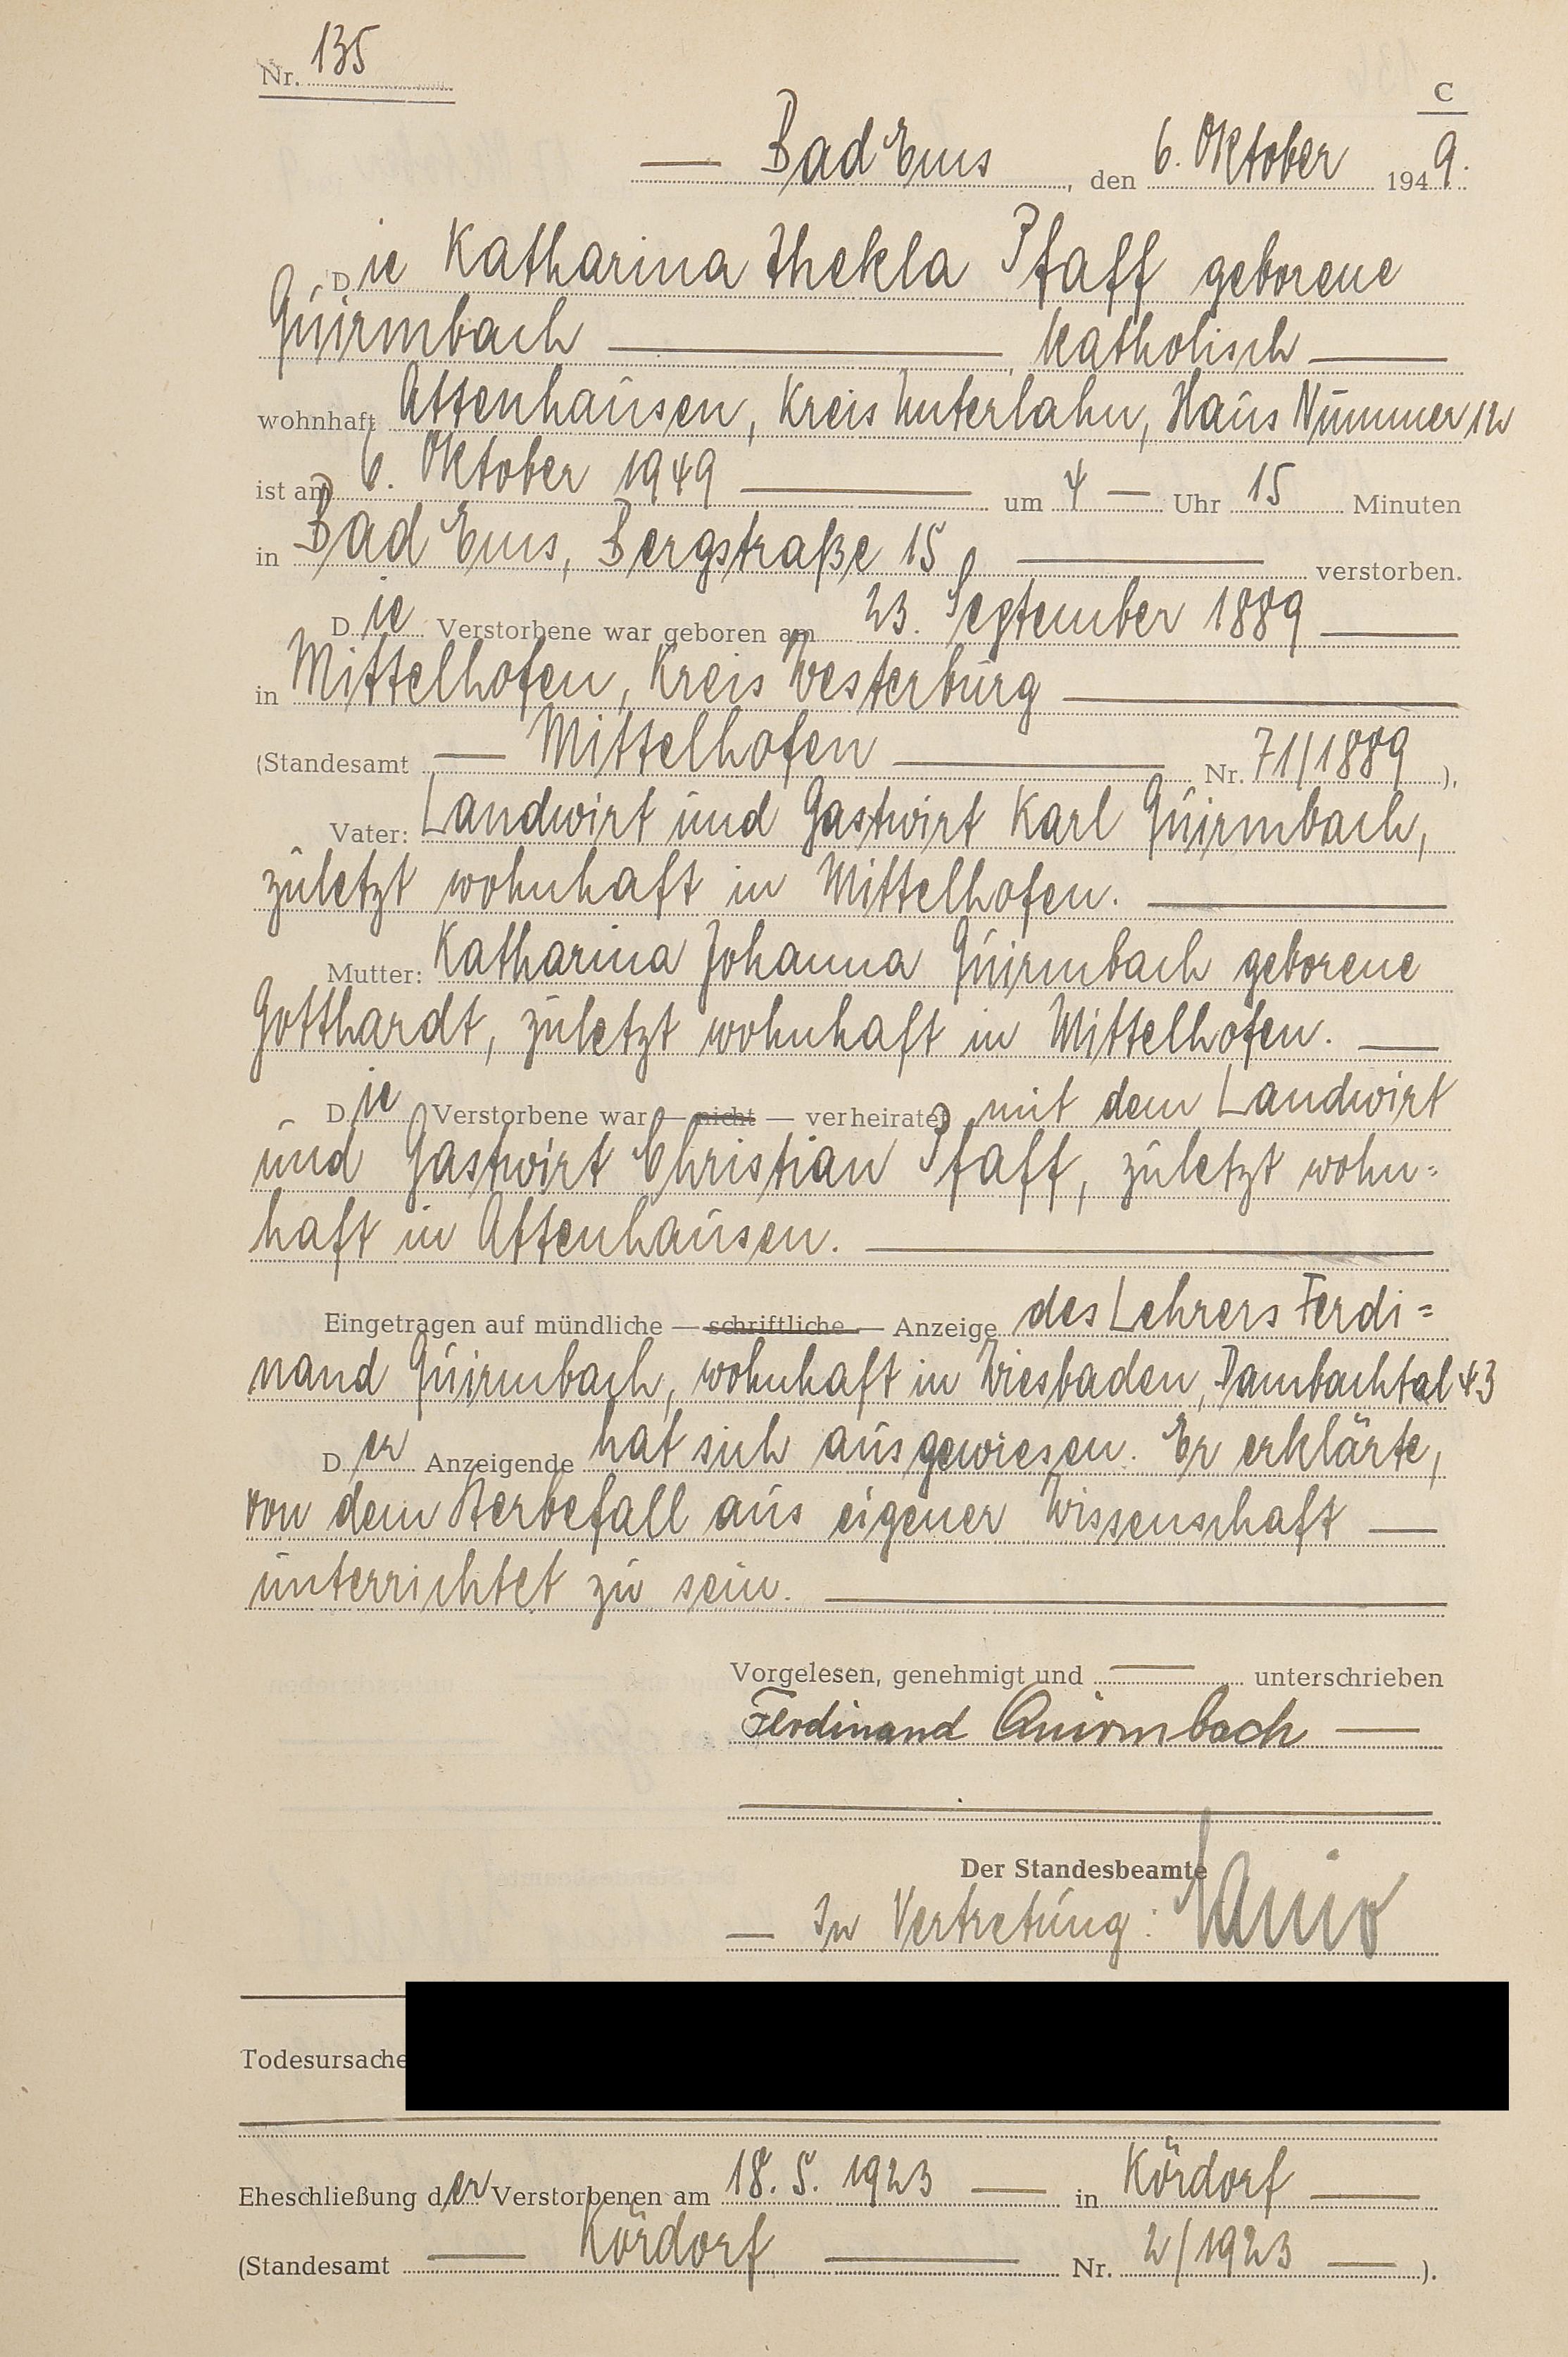 Nr. 135
C
Bad Ems, den 6. Oktober 1949.
Die Katharina Thekla Pfaff geborene
Quirmbach, katholisch
wohnhaft Attenhausen, Kreis Unterlahn, Haus Nummer 12
ist am 6. Oktober 1949 um 4 Uhr 15 Minuten
in Bad Ems, Bergstraße 15 verstorben.
Die Verstorbene war geboren am 23. September 1889
in Mittelhofen, Kreis Westerburg
(Standesamt Mittelhofen Nr. 71/1889),
Vater: Landwirt und Gastwirt Karl Quirmbach,
zuletzt wohnhaft in Mittelhofen.
Mutter: Katharina Johanna Quirmbach geborene
Gotthardt, zuletzt wohnhaft in Mittelhofen.
Die Verstorbene war — nicht — verheiratet mit dem Landwirt
und Gastwirt Christian Pfaff, zuletzt wohn=
haft in Attenhausen.
Eingetragen auf mündliche — schriftliche — Anzeige des Lehrers Ferdi=
nand Quirmbach, wohnhaft in Wiesbaden, Dambachtal 43
Der Anzeigende hat sich ausgewiesen. Er erklärte,
von dem Sterbefall aus eigener Wissenschaft
unterrichtet zu sein.
Vorgelesen, genehmigt und unterschrieben
Ferdinand Quirmbach
Der Standesbeamte
In Vertretung:
Todesursache
Eheschließung der Verstorbenen am 18. 5. 1923 in Kördorf
(Standesamt Kördorf Nr. 2/1923).